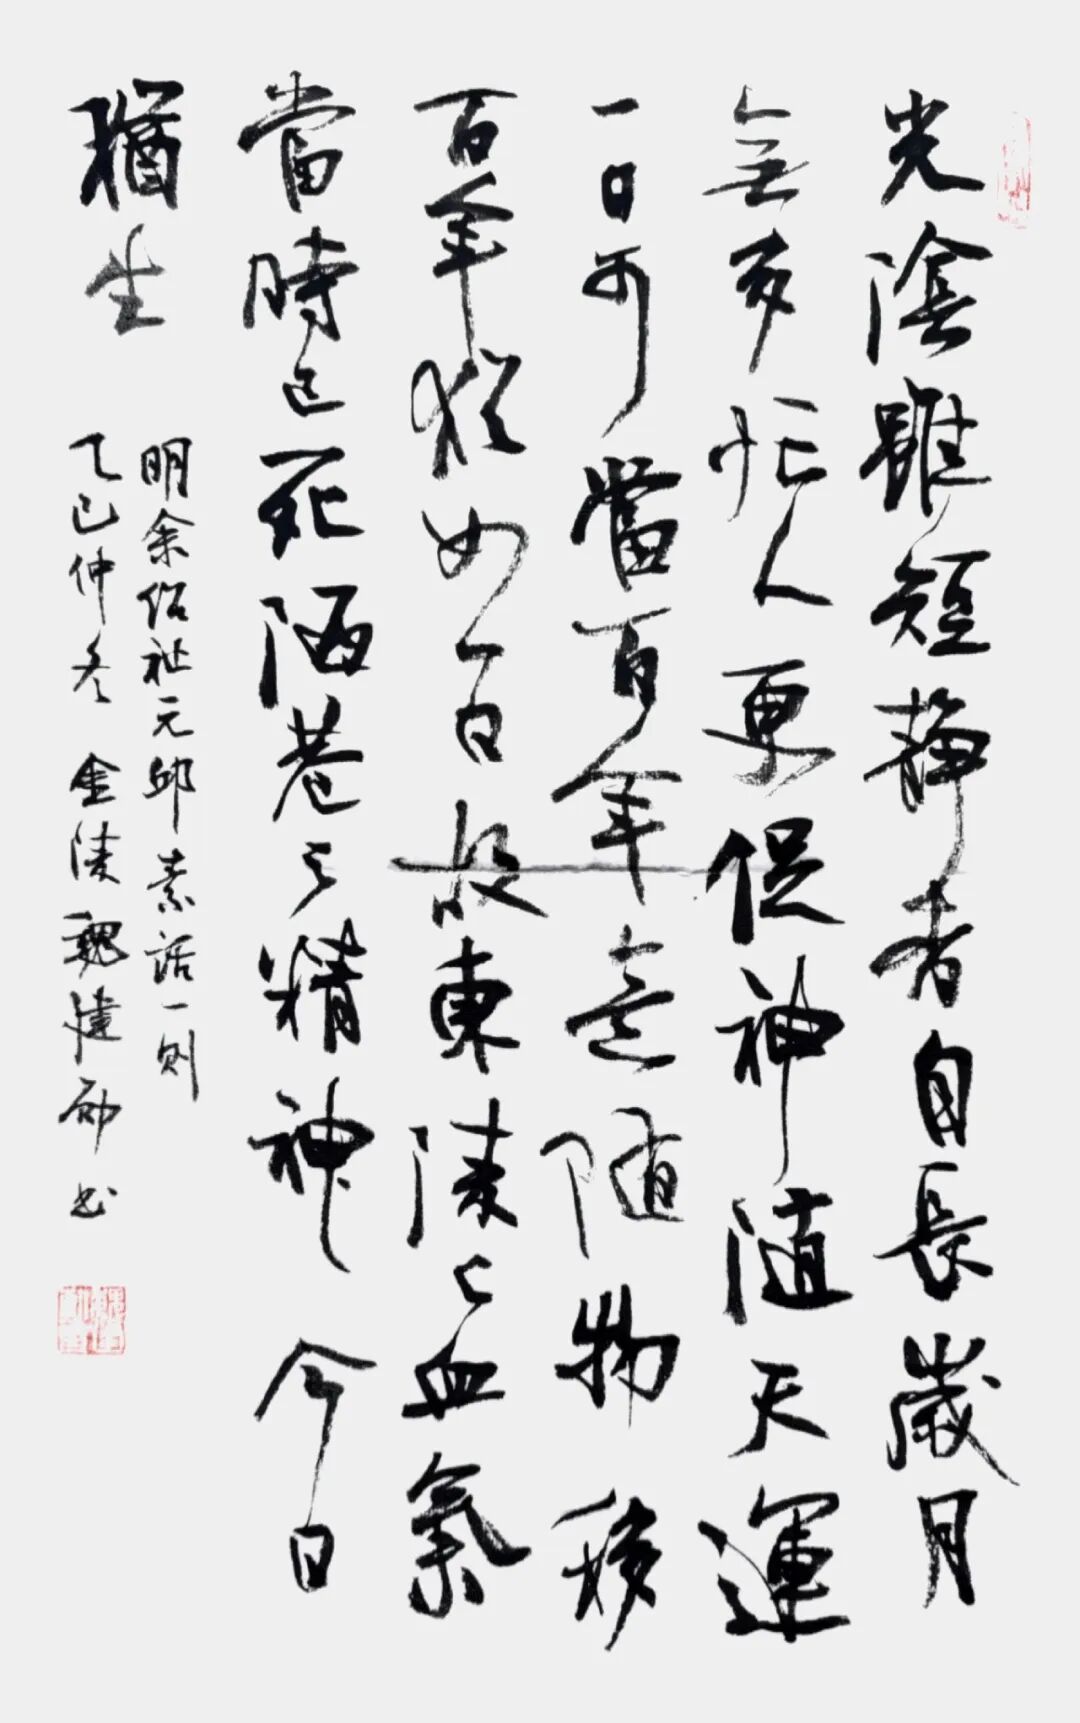 光陰雖短静者自長歲月
無多忙人更促神随天運
一日可當百年意随物移
百年犹如一日故東陵之血氣
當時已死陋巷之精神今日
猶生
明余绍祉元邱素話一则
乙巳仲冬 金陵魏 书